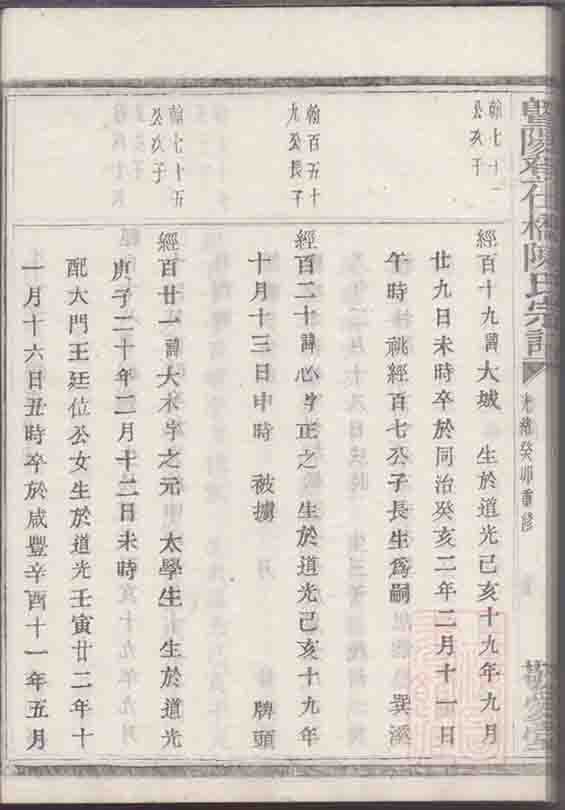 暨陽
橋陳氏宗譜
光緒癸卯重修
敬愛堂
翰七十一
公次子
經百十九諱大城 生於道光己亥十九年九月
廿九日未時卒於同治癸亥二年二月十一日
午時祧經百七公子長生為嗣 巽溪
翰百五十
九公長子
經百二十諱心 字正之 生於道光己亥十九年
十月十三日申時 被擄 牌頭
翰七十五
公次子
經百廿一諱大木字之元 太學生 生於道光
庚子二十年二月十二日未時
配大門王廷位公女生於道光壬寅廿二年十
一月十六日丑時卒於咸豐辛酉十一年五月